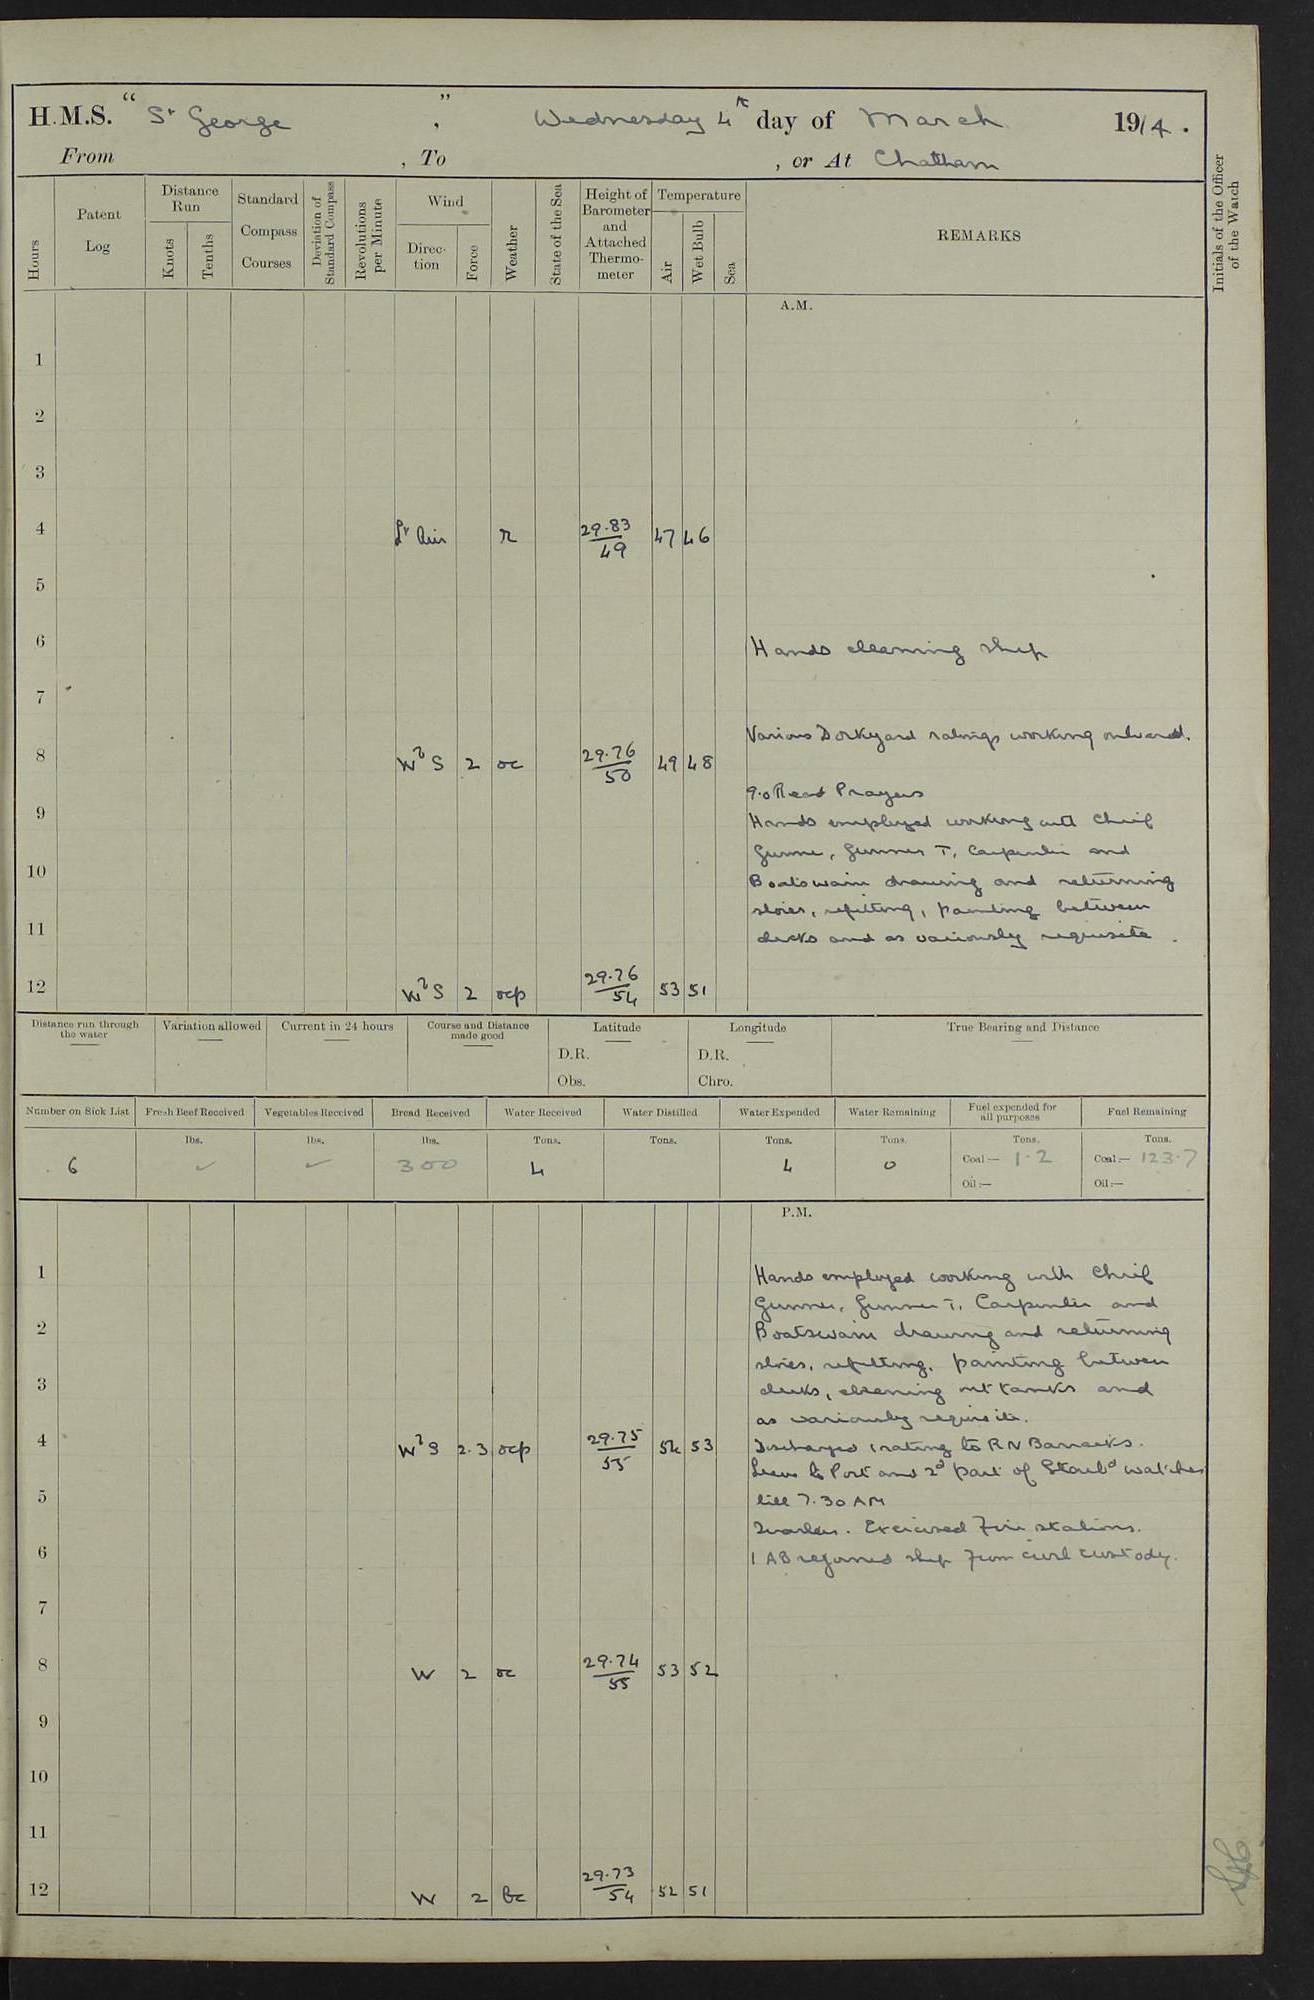 H.M.S. “ St George ” , Wednesday 4th day of March 1914.
From , To , or At Chatham
Hours
Patent Log
Distance Run
Knots
Tenths
Standard Compass Courses
Deviation of Standard Compass
Revolutions per Minute
Wind
Direc-tion
Force
Weather
State of the Sea
Height of Barometer and Attached Thermo-meter
Temperature
Air
Wet Bulb
Sea
REMARKS
Initials of the Officer of the Watch
A.M.
1
2
3
4 Lt Air r 29.83/49 47 46
5
6 Hands cleaning ship
7
Various Dockyard ratings working onboard.
8 W?S 2 oc 29.76/50 49 48
9.0 Read Prayers
9 Hands employed working with Chief
Gunner, Gunner T, Carpenter and
10 Boatswain drawing and returning
stores, refitting, painting between
11 decks and as variously requisite.
12 W?S 2 ocp 29.76/54 53 51
Distance run through the water
Variation allowed
Current in 24 hours
Course and Distance made good
Latitude
D.R.
Obs.
Longitude
D.R.
Chro.
True Bearing and Distance
Number on Sick List
Fresh Beef Received
Vegetables Received
Bread Received
Water Received
Water Distilled
Water Expended
Water Remaining
Fuel expended for all purposes
Fuel Remaining
lbs. lbs. lbs. Tons. Tons. Tons. Tons. Tons. Tons.
6 ✓ ✓ 300 4 4 0 Coal— 1.2 Coal:— 123.7
Oil:— Oil:—
P.M.
1 Hands employed working with Chief
Gunner, Gunner T, Carpenter and
2 Boatswain drawing and returning
stores, refitting, painting between
3 decks, cleaning out tanks and
as variously requisite.
4 W?S 2.3 ocp 29.75/55 54 53 Discharged 1 rating to RN Barracks.
Leave to Port and 2d part of Starbd watches
5 till 7.30 AM
Quarters. Exercised Fire stations.
6 1 AB rejoined ship from civil custody.
7
8 W 2 oc 29.74/55 53 52
9
10
11
12 W 2 bc 29.73/54 52 51